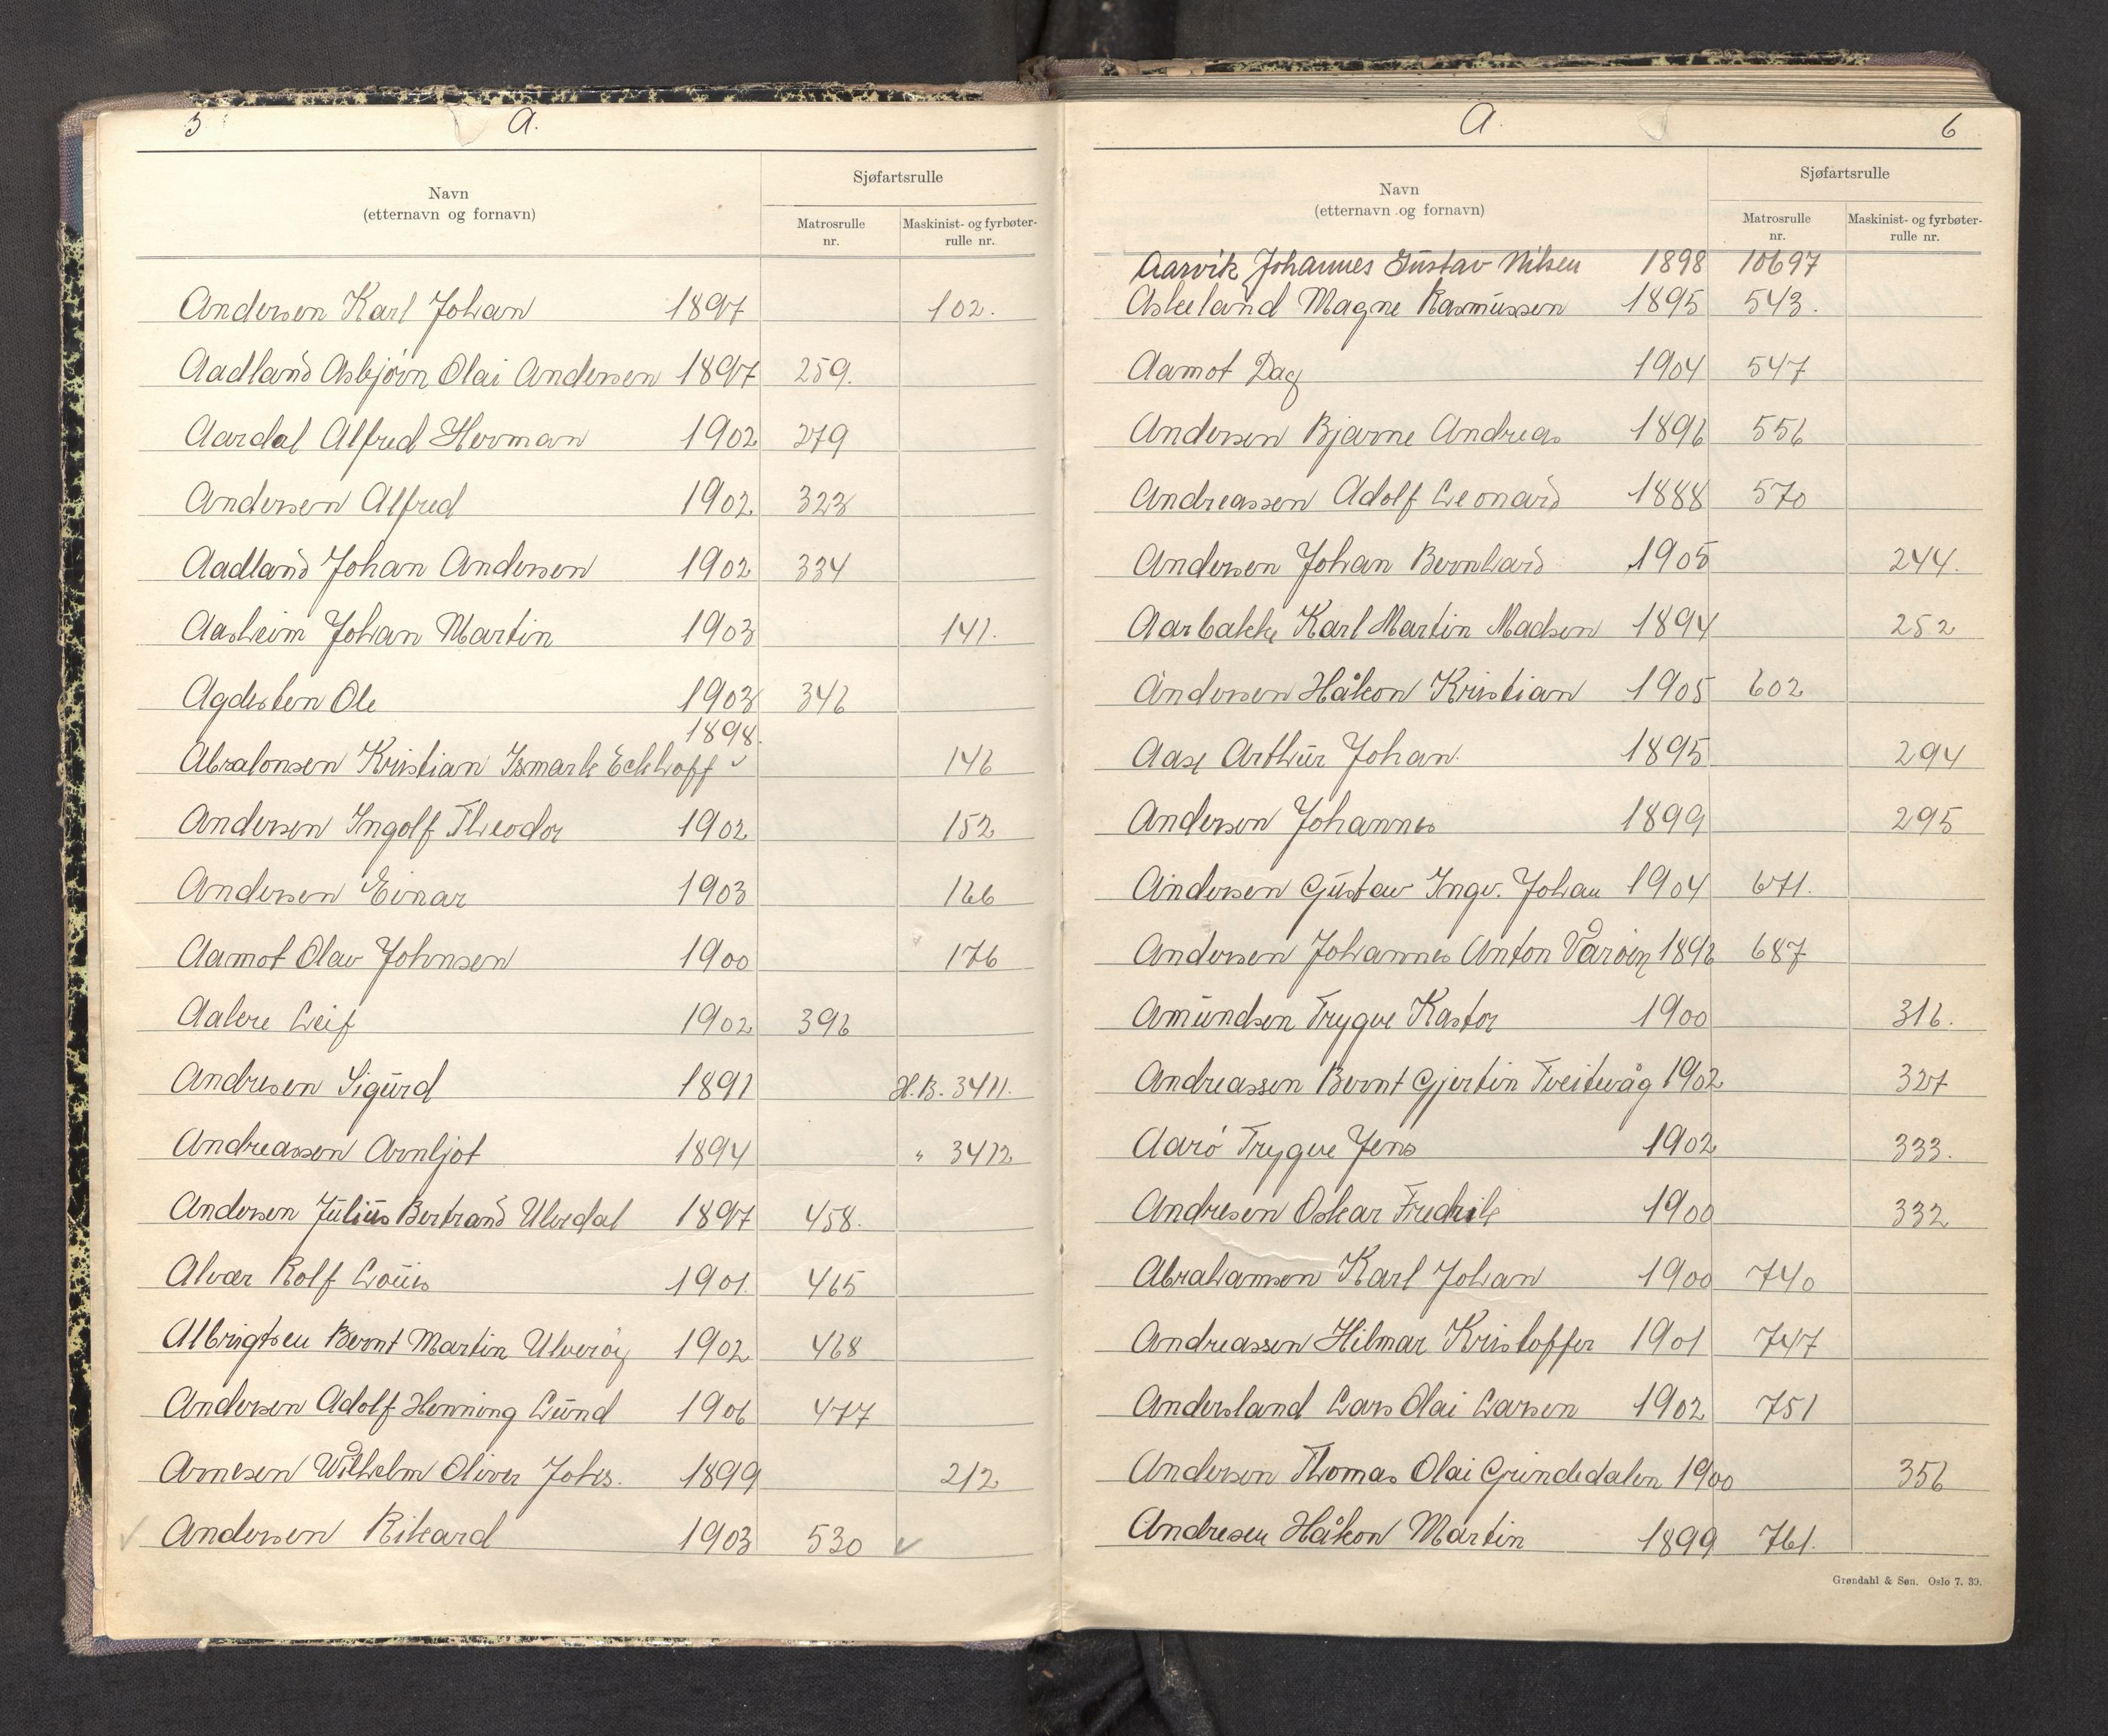 5 A.
Navn
(etternavn og fornavn)
Sjøfartsrulle
Matrosrulle
nr.
Maskinist- og fyrbøter-
rulle nr.
Andersen Karl Johan 1897 102.
Aadland Asbjørn Olai Andersen 1897 259.
Aardal Alfred Herman 1902 279
Andersen Alfred 1902 323
Aadland Johan Andersen 1902 334
Aasheim Johan Martin 1903 141.
Agdesten Ole 1903 346
1898.
Abralonsen Kristian Ismark Eckhoff 146
Andersen Ingolf Theodor 1902 152
Andersen Einar 1903 166
Aamot Olav Johnsen 1900 176
Aakre Leif 1902 396
Andresen Sigurd 1891 H.B. 3411.
Andreassen Arnljot 1894 " 3412
Andersen Julius Bertrand Ulvedal 1897 458.
Alvær Rolf Louis 1901. 465
Albrigtsen Bernt Martin Ulverøy 1902 468
Andersen Adolf Henning Lund 1906 477
Arnesen Wilhelm Oliver Johs. 1899 212
✓ Andersen Rikard 1903 530 ✓
A. 6
Navn
(etternavn og fornavn)
Sjøfartsrulle
Matrosrulle
nr.
Maskinist- og fyrbøter-
rulle nr.
Aarvik Johannes Gustav Nilsen 1898 10697
Askeland Magne Rasmussen 1895 543.
Aamot Dag 1904 547
Andersen Bjarne Andreas 1896 556
Andreassen Adolf Leonard 1888 570
Andersen Johan Bernhard 1905 244.
Aarbakke Karl Martin Madsen 1894 252
Andersen Håkon Kristian 1905 602
Aase Arthur Johan. 1895 294
Andersen Johannes 1899 295
Andersen Gustav Ingv. Johan 1904 671.
Andersen Johannes Anton Varøen 1896 687
Amundsen Trygve Kastor 1900 316.
Andreassen Bernt Gjertin Tveitevåg 1902 327
Aarø Trygve Jens 1902 333.
Andresen Oskar Fredrik 1900 332
Abrahamsen Karl Johan 1900 740
Andreassen Hilmar Kristoffer 1901 747
Andersland Lars Olai Larsen 1902 751
Andersen Thomas Olai Grindedalen 1900 356
Andresen Håkon Martin 1899 761.
Grøndahl & Søn. Oslo 7. 39.